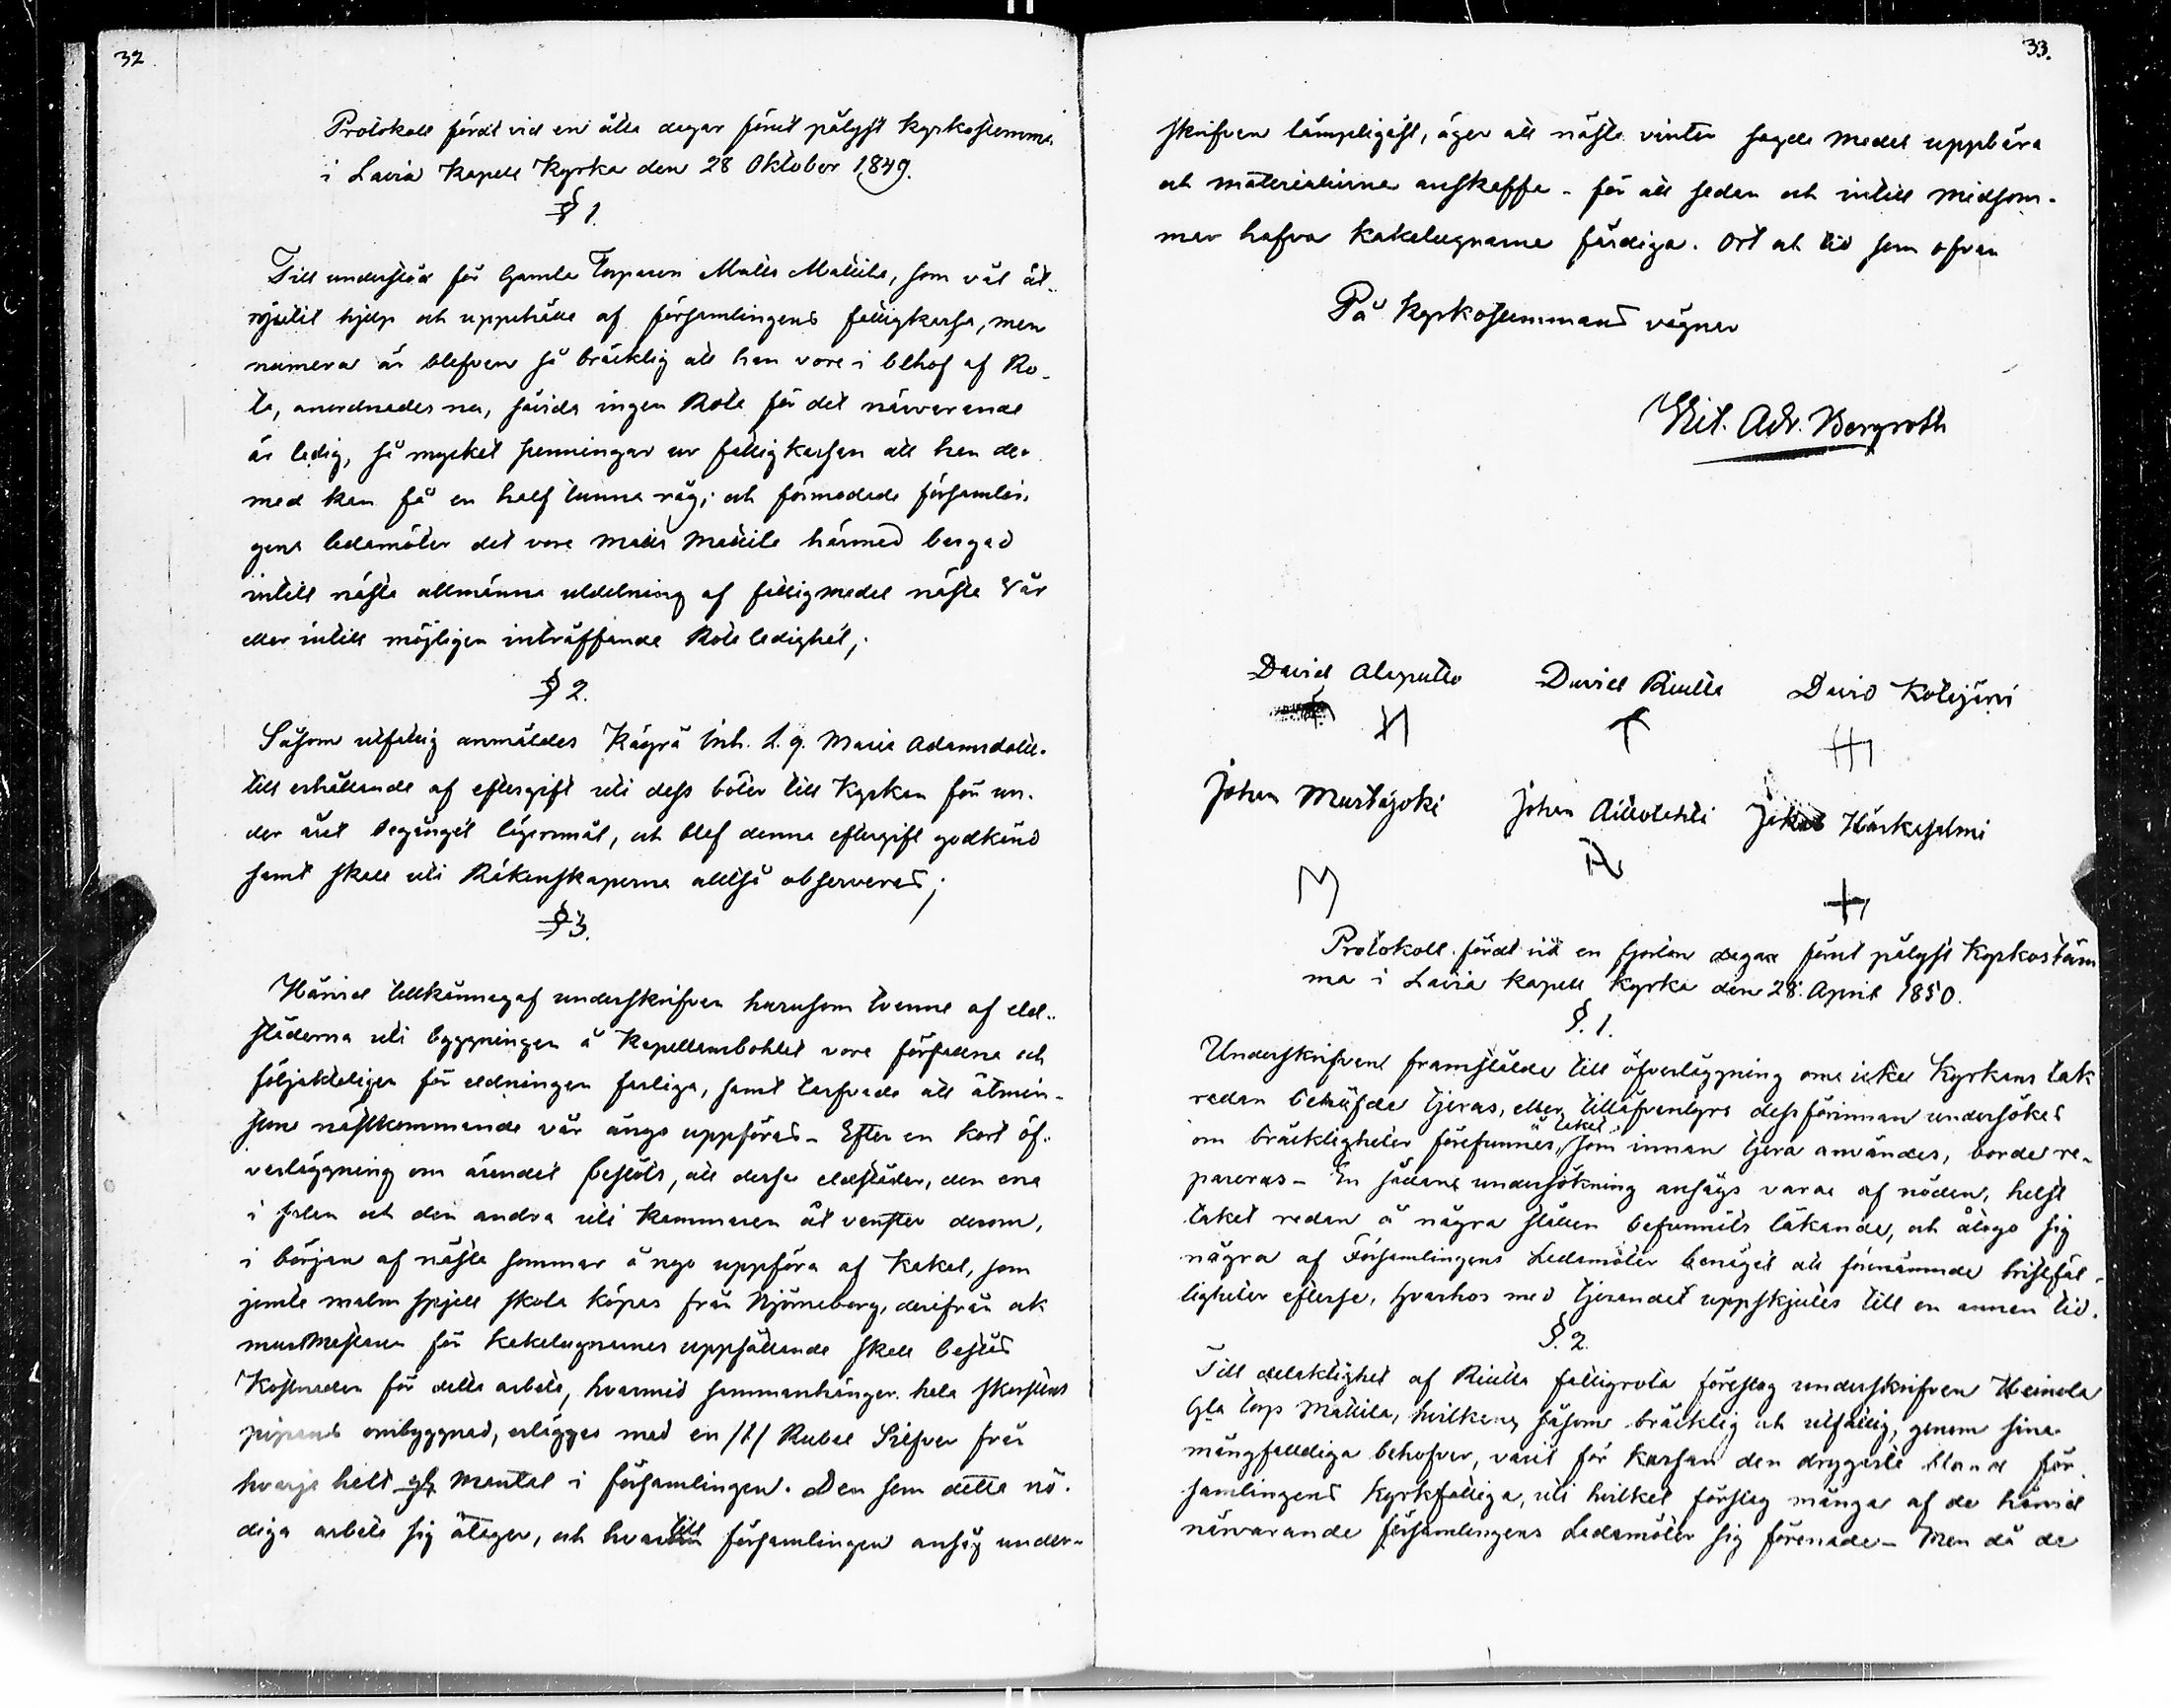 32
Protokoll fördt vid en åtta dagar förut pålyst Kyrkostemma
i Lavia Kapell Kyrka den 28 Oktober 1849.
§ 1.
Till understöd för Gamla Torparen Matts Mattila, som väl åt-
njutit hjelp och uppehälle af församlingens fattigkassa, men
numera är blefven så bräcklig att han vore i behof af Ro-
te, anordnades nu, såvida ingen Rote för det närvarande
är ledig, så mycket penningar ur fattigkassan att han der
med kan få en half tunna råg; och förmodade församlin-
gens ledamöter det vore Matts Mattila härmed bergad
intill nästa allmänna utdelning af fattigmedel nästa Vår
eller intill möjligen inträffande Rote ledighet;
§ 2.
Såsom utfattig anmäldes Kägrä Inh. L. q. Maria Adamsdotter
till erhållande af eftergift uti dess böter till Kyrkan för un-
der året begånget lägersmål, och blef denna eftergift godkänd
samt skall uti Räkenskaperna alltså observeras;
§ 3.
Härvid tillkännagaf underskrifven hurusom tvenne af eld-
städerna uti byggningen å Kapellansbohlet vore förfallna och
följakteligen för eldningen farliga, samt tarfvade att åtmin-
stone nästkommande vår å nyo uppföras - Efter en kort öf-
verläggning om ärendet beslöts, att dessa eldstäder, den ena
i salen och den andra uti Kammaren åt venster derom,
i början af nästa sommar å nyo uppföra af Kakel, som
jemte malm spjell skola köpas från Björneborg, derifrån ock
murmästaren för kakelugnarnes uppsättande skall bestås
Kostnaden för detta arbete, hvarmed sammanhänger hela skorstens
pipans ombyggnad, erlägges med en /1/ Rubel Silfver från
hvarje helt Mantal i församlingen. Den som detta nö-
diga arbete sig åtager, och hvartill församlingen ansåg under-
33.
skrifven lämpligast, äger att nästa vinter sagde medel uppbära
och materialierna anskaffa - för att sedan och intill midsom-
mar hafva Kakelugnarne färdiga. Ort och tid som ofvan
På Kyrkostemmans vägnar
Vict. Adr. Bergroth
David Alaputto David Riutta David Kotajärvi
Johan Mustajoki Johan Ailiolahti Jakob Harkasalmi
Protokoll fördt vid en fjorton dagar förut pålyst Kyrkostäm
ma i Lavia Kapell Kyrka den 28. April 1850.
§. 1.
Underskrifven framställde till öfverläggning om icke Kyrkans tak
redan behöfde tjäras, eller tilläfventyrs dessförinnan undersökas
å taket
om bräckligheter förefunnes, som innan tjära användes, borde re-
pareras - En sådan undersökning ansågs vara af nöden, helst
taket redan å några ställen befunnits läkande, och åtogo sig
några af Församlingens Ledamöter benäget att förenämnde bristfäl-
ligheter efterse, hvarhos med tjärandet uppskjutes till en annan tid.
§. 2.
Till delaktighet af Riutta fattigrota föreslog underskrifven Heinola
Gla Torp Mattila, hvilken, såsom bräcklig och utfattig, genom sina
mångfalldiga behofver, varit för kassan den drygaste bland för-
samlingens Kyrkfattiga, uti hvilket förslag många af de härvid
närvarande församlingens Ledamöter sig förenade - Men då de